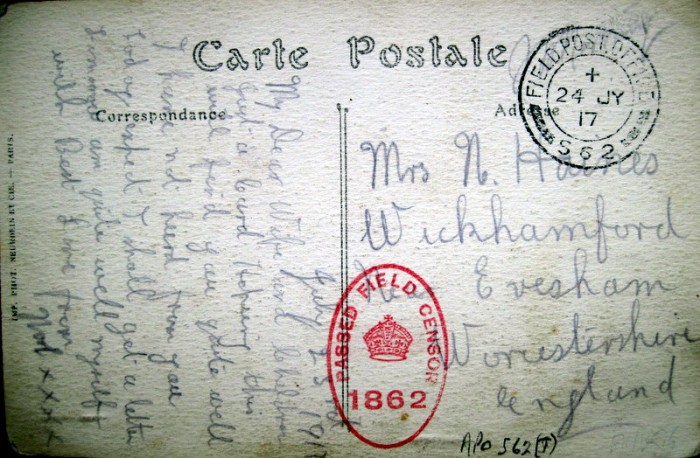 Carte Postale
Correspondance
Adresse
FIELD POST OFFICE
+
24 JY
17
S 62
Mrs N. Haines
Wickhamford
Nr Evesham
Worcestershire
England
PASSED FIELD CENSOR
1862
APO S62 (T)
July 23rd 1917
My Dear Wife and
Just a card Hoping this
will find you quite well
I have not heard from you
today expect I shall get a letter
am quite well myself
with Best Love from
xxxx
IMP. PHOT. NEURDEIN ET CIE. — PARIS.